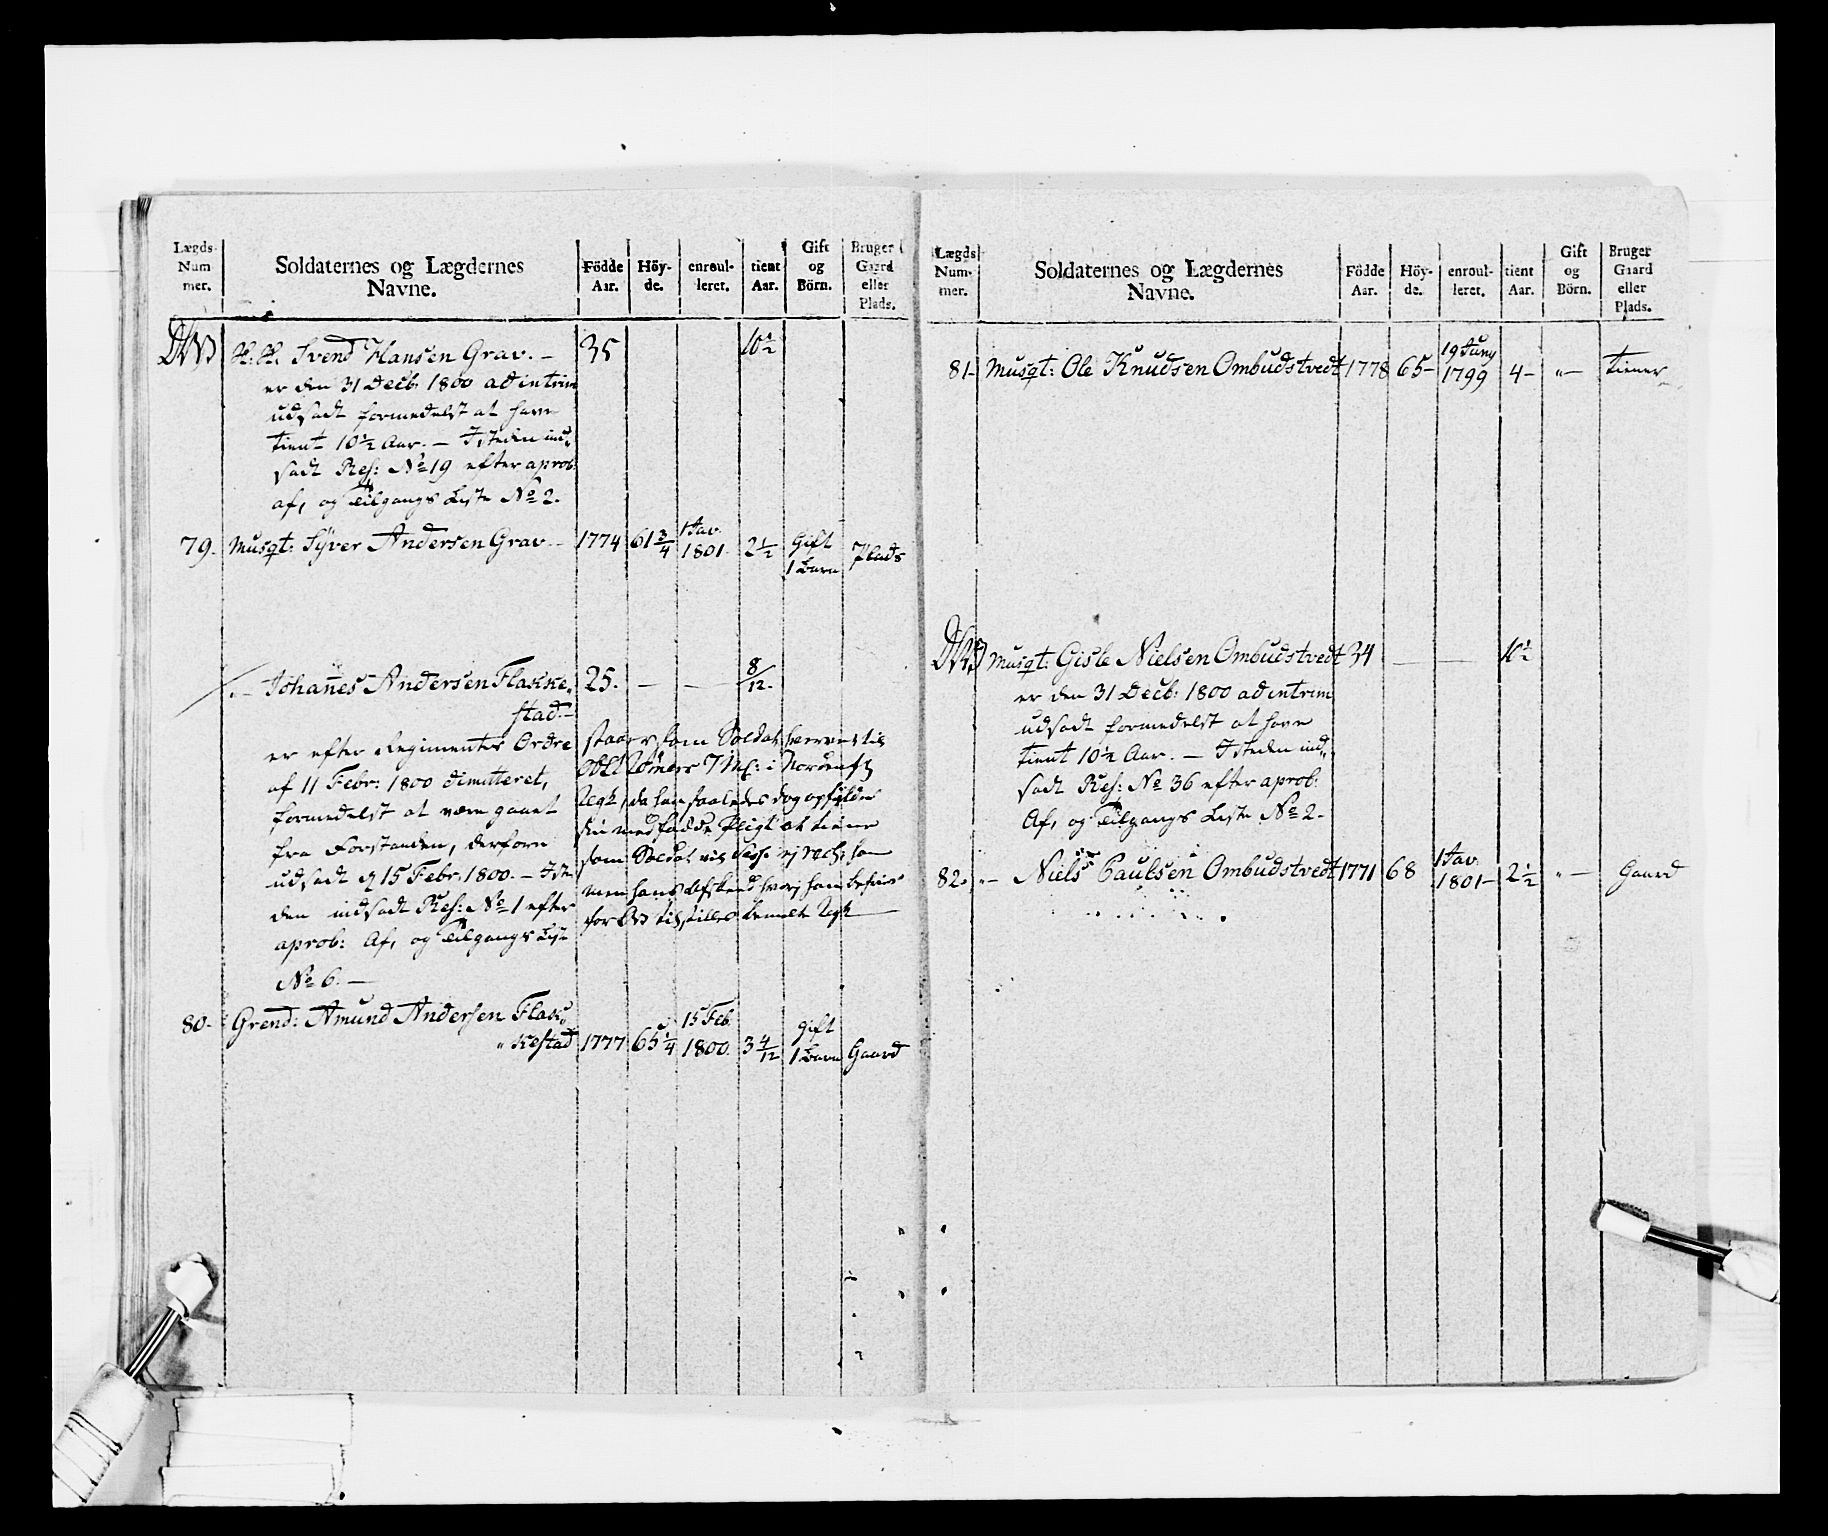 Lægds-
Num
mer.
Soldaternes og Lægdernes
Navne.
Födde
Aar.
Höy-
de.
enroul-
leret.
tient
Aar.
Gift
og
Börn.
Bruger
Gaard
eller
Plads.
H. H. Svend Hansen Grav. – 35 10½
er den 31 Decb: 1800 ad intrim
udsadt formedelst at have
tient 10½ Aar. – Isteden ind-
sadt Res: No 19 efter aprob:
af, og Tilgangs Liste No 2.
79. Musqt: Syver Andersen Grav – 1774 61¾ 1 Jav. 1801. 2½ Gift 1 Barn Plads
– Johannes Andersen Flaske- 25. – – 8/12.
stad. –
er efter Regimentes Ordre
af 11 Febr: 1800 dimitteret,
formedelst at være gaaet
fra Forstanden, derfore
udsadt d 15 Febr. 1800. – Iste-
den indsadt Res: No 1 efter
aprob: Af, og Tilgangs List
No 6. –
staar som Soldat
i Nordenf:
da han saaledes dog opfylder
sin medfødde Pligt at tiene
som Soldat
men hans Afskeed
80. Grend: Amund Andersen Flas-
kestad 1777 65¼ 15 Feb. 1800. 3 4/12 gift 1 Barn Gaard
Lægds
Num-
mer.
Soldaternes og Lægdernes
Navne.
Födde
Aar.
Höy-
de.
enroul-
leret.
tient
Aar.
Gift
og
Börn.
Bruger
Gaard
eller
Plads.
81– Musqt: Ole Knudsen Ombudstvedt 1778 65– 19 Juny 1799 4– "– tiener
Musqt: Gisle Nielsen Ombudstvedt 34 – – 10½
er den 31 Decb: 1800 ad intrim
udsadt formedelst at have
tient 10½ Aar. – Isteden ind-
sadt Res: No 36 efter aprob:
Af, og Tilgangs Liste No 2.
82. "– Niels Paulsen Ombudstvedt 1771 68 1 Jav. 1801– 2½ "– Gaard